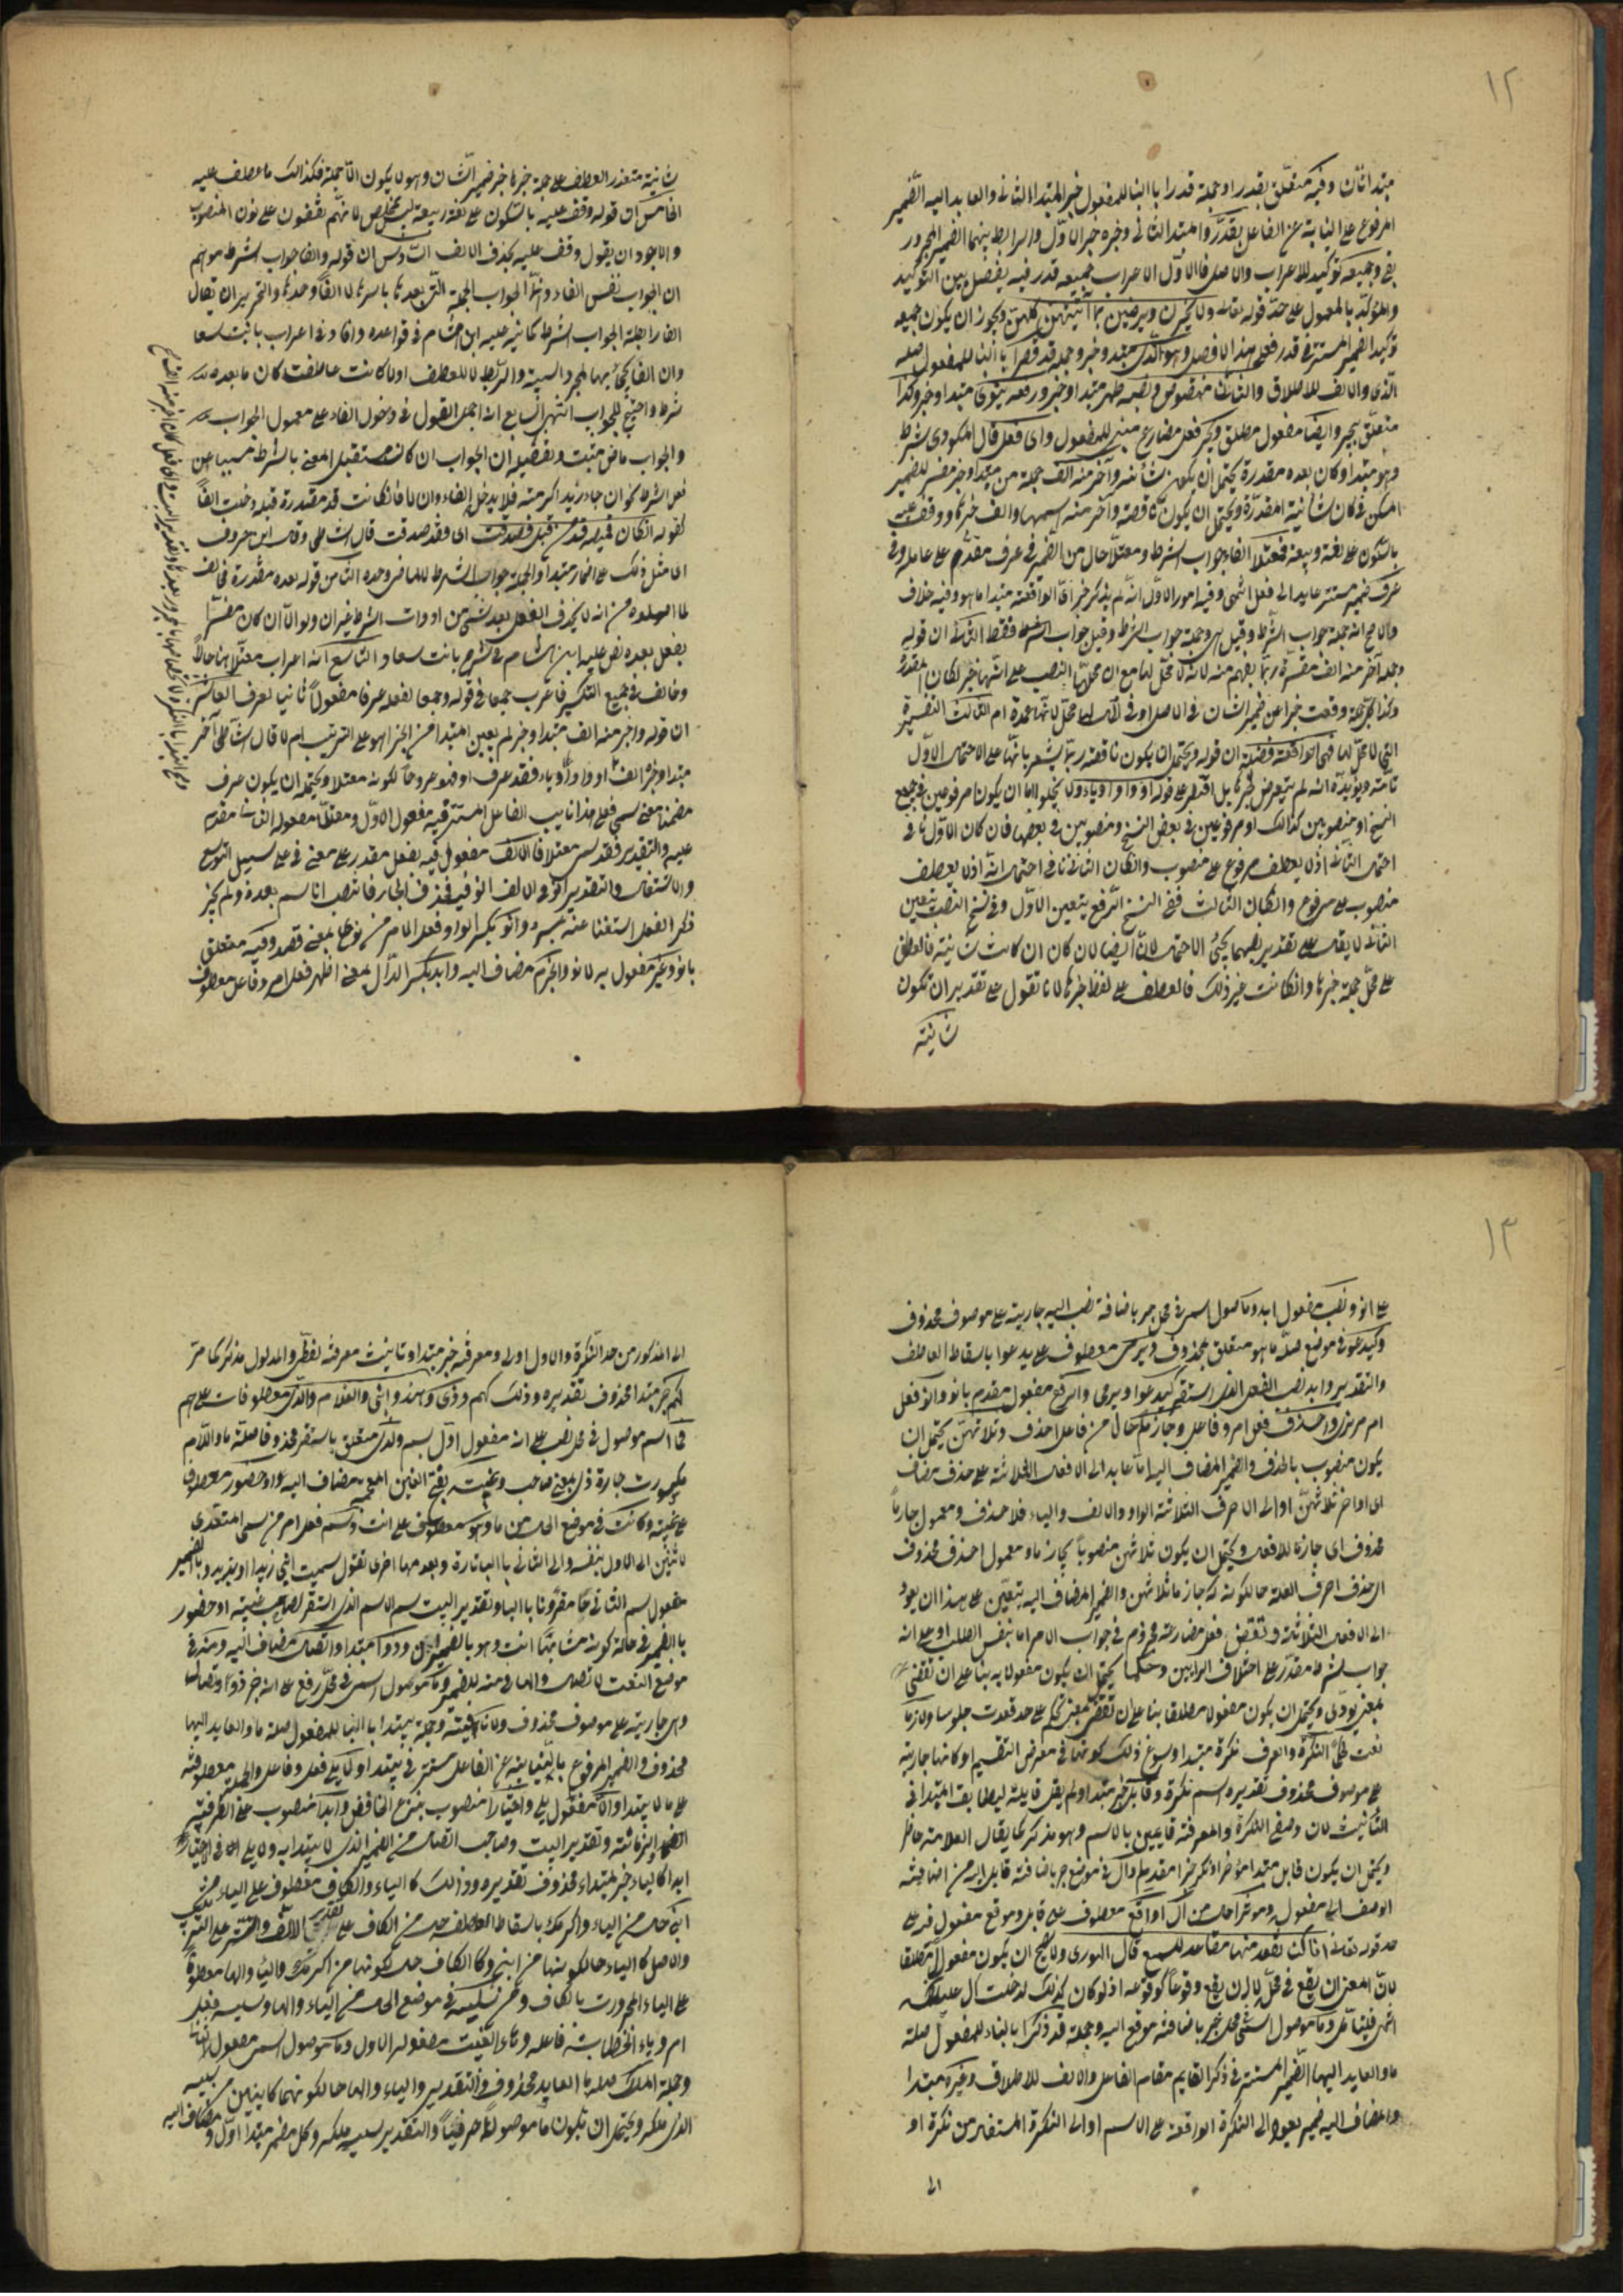 ١٢
مبتدا ثان وفيه متعلّق بقدرا وجملة قدرا بالبنا للمفعول خبر المبتدا الثانى والعايد اليه الضّمير
المرفوع على النيابة عن الفاعل بقدّر والمبتدا الثانى وخبره خبر الاوّل والرابط بينهما الضمير المجرور
بفى وجميعه توكيد للاعراب والاصل فالاوّل الاعراب جميعه قدر فيه يفصل بين التوكيد
والمؤكّد بالمعمول على حدّ قوله تعالى ولا يحزنّ ويرضين بما آتيتهن كلهن ويجوز ان يكون جميعه
توكيد الضمير المستتر فى قدر فعلى هذا لا فصل وهو الّذى مبتدا وخبر وجملة قد قصرا بالبنا للمفعول صلة
الّذى والالف للاطلاق والثان منقوص ونصبه ظهر مبتدا وخبر ورفعه ينوى مبتدا وخبر وكذا
متعلّق بيجر وايضا مفعول مطلق ويجر فعل مضارع مبنى للمفعول واى فعل قال المكودى شرط
وهو مبتدا وكان بعده مقدرة يحتمل ان يكون شأنية وآخر منه الف جملة من مبتدا وخبر مفسر للضمير
المسكن فى كان شانية المقدّرة ويحتمل ان يكون ناقصة وآخر منه اسمها والف خبرها ووقف عليه
بالسّكون على لغة ربيعة فمعتلا الفاء جواب الشرط ومعتلّا حال من الضمير فى عرف مقدّم على عامله وفى
عرف ضمير مستتر عايد الى فعل انتهى وفيه امور الاوّل انّه لم يذكر خبر اىّ الواقعة مبتدا ما هو وفيه خلاف
والاصح انه جملة جواب الشّرط وقيل هى وجملة جواب الشرط وقيل جواب الشرط فقط الثانى ان قوله
وجملة آخر منه الف مفسّرة ربّما يفهم منه لانه لا محلّ لها مع ان محلّها النصب على انّها خبر لكان المقدرة
وكذا كل جملة وقعت خبرا عن ضمير الشان فى الاصل او فى الحال لها محلّ لانّها عمدة ام الثالث التفسيرية
التى لا محلّ لها فهى الواقعة فضلة ان قوله ويحتمل ان يكون ناقصة ربّما يشعر بانّها على الاحتمال الاوّل
تامة ويؤيّده انّه لم يتعرض لخبرها بل اقتصر على قوله او واو او ياء ولا يخلو اما ان يكون مرفوعين فى جميع
النسخ او منصوبين كذلك او مرفوعين فى بعض النسخ ومنصوبين فى بعضها فان كان الاوّل نافى
احتمال الثانى اذ لا يعطف مرفوع على منصوب وانكان الثانى نافى احتمال انّه اذ لا يعطف
منصوب على مرفوع وانكان الثالث ففى النسخ الرّفع يتعين الاوّل وفى نسخ النصب يتعين
الثانى لا يقال على تقدير نصبهما يجئ الاحتمال لانّا ايضا لان كان ان كانت شانية فالعطف
على محلّ جملة خبرها وانكانت غير ذلك فالعطف على لفظ خبرها لانا نقول على تقدير ان تكون
شانية
شانية متعذر العطف على جملة خبرها خبر ضمير الشّان وهو لا يكون الّا جملة فكذلك ما عطف عليه
الخامس ان قوله وقف عليه بالسّكون على لغة ربيعة ليس بمخلص لانّهم يقفون على نون المنصوب
والاجود ان يقول وقف عليه بحذف الالف السّادس ان قوله والفا جواب الشرط موهم
ان الجواب نفس الفاء وانّما الجواب الجملة الّتى بعدها باسرها لا الفا وحدها والتحرير ان يقال
الفا رابطة الجواب الشرط كما نبّه عليه ابن هشام فى قواعده وافاد فى اعراب بانت سعا
وان الفا يجئ بها لمجرد السببية والربط لا للعطف اذ لو كانت عاطفة كان ما بعده من
شرط واحتيج للجواب انتهى السابع انه اجمل القول فى دخول الفاء على معمول الجواب
والجواب ماض مثبت وتفصيله ان الجواب ان كان مستقبل المعنى بالشرط مسببا عن
فعل الشرط نحو ان جاء زيد اكرمته فلا يدخل الفاء وان كان ماضيا كانت قد مقدرة قبله ودخلت الفا
كقوله ان كان قميصه قدّ من قبل فصدقت اى فقد صدقت قال الشاطبى وقال ابن خروف
ان مثل ذلك على اضمار مبتدا والجملة جواب الشرط لا الماضى وحده الثامن قوله بعده مقدّرة مخالف
لما اصلوه من انه لا يحذف الفعل بعد شئ من ادوات الشرط غير ان ولو الّا ان كان مفسّرا
بفعل بعده نص عليه ابن هشام فى شرح بانت سعاد التاسع انه اعراب معتلّا هنا حالا
وخالف فى جميع التكسير فاعرب جمعا فى قوله وجمعا لفعله عرفا مفعولا ثانيا لعرف العاشر
ان قوله واخر منه الف مبتدا وخبر لم يعين المبتدا من الخبر اهو على الترتيب ام لا قال الشاطبى آخر
مبتدا وخبره الف او واو او ياء فقد عرف او فهو عروضا لكونه معتلا ويحتمل ان يكون عرف
مضمنا معنى سمى فعلى هذا نايب الفاعل المستتر فيه مفعول الاوّل ومعتلّا مفعوله الثانى مقدم
عليه والتقدير فقد سمى معتلا فالالف مفعول فيه بفعل مقدر على معنى فى على سبيل التوسع
والاشتغال والتقدير انو فى الالف انو فيه فحذف الجار فانتصب الاسم بعده ولم يجز
ذكر الفعل استغنا عنه بمفسره وانو بكسر الواو فعل امر من نوى بمعنى قصد وفيه متعلق
بانو وغير مفعول به لانو والجزم مضاف اليه وابد بكسر الدّال بمعنى اظهر فعل امر وفاعل معطوف
١٣
على انو ونصب مفعول ابد وما موصول اسمى فى محل جر باضافة نصب اليه جارية على موصوف محذوف
وكيدعو فى موضع صلة ما هو متعلق بمحذوف ويرمى معطوف على يدعو باسقاط العاطف
والتقدير وابد نصب الفعل الذى استقر كيدعو او يرمى والرفع مفعول مقدم بانو وانو فعل
امر مرزا واحذف فعل امر وفاعل وجازما حال من فاعل احذف وثلاثهنّ يحتمل ان
يكون منصوب بالحذف والضمير المضاف اليه اما عايد الى الافعال الثلاثة على حذف مضاف
اى اواخر ثلاثهنّ او الى الاحرف الثلاثة الواو والالف والياء فلا حذف ومعمول جازما
محذوف اى جازما للافعال ويحتمل ان يكون ثلاثهن منصوبا بجازما ومعمول احذف محذوف
اى حذف احرف العلة حالكونه جازما ثلاثهن والضمير المضاف اليه يتعيّن على هذا ان يعود
الى الافعال الثلاثة وتقض فعل مضارعه مجزوم فى جواب الامر اما بنفس الطلب او على انه
جواب لشرط مقدر على اختلاف الرايين وحكما يحتمل ان يكون مفعولا به بناء على ان تقضى
بمعنى يؤدّى ويحتمل ان يكون مفعولا مطلقا بناء على ان تقضى بمعنى تحكم على حد قعدت جلوسا ولازما
نعت حكما النكرة والمعرف نكرة مبتدا وسوغ ذلك كونها فى معرض التقسيم او كانها جارية
على موصوف محذوف تقديره اسم نكرة وقابل خبر مبتدا ولم يقل قابلة ليطابقه المبتدا فى
التأنيث لان وصفى النكرة والمعرفة قايمين بالاسم وهو مذكر كما يقال العلامة حاضر
ويحتمل ان يكون قابل مبتدا مؤخرا ونكرة خبرا مقدما وال فى موضع جر باضافة قابل اليه من اضافة
الوصف الى مفعوله ومؤثرا حال من ال او واقع معطوف على قابل وموقع مفعول فيه على
حد قوله تعالى انا كنا نقعد منها مقاعد للسمع قال الهوارى ولا يصح ان يكون مفعولا مطلقا
لانّ المعنى ان يقع فى محلّ ال ان يقع وقوعا كوقوعه اذ لو كان كذلك لدخلت ال عليه
انتهى فليتأمّل وما موصول اسمى محل جر باضافة موقع اليه وجملة قد ذكرا بالبناء للمفعول صلة
ما والعايد اليها الضّمير المستتر فى ذكرا القايم مقام الفاعل والالف للاطلاق وغيره مبتدا
والمضاف اليه ضمير يعود الى النكرة الواقعة على الاسم او الى النكرة المستفاد من نكرة او
الى
الى المذكور من حد النّكرة والاول اولى ومعرفة خبر مبتدا وتانيث معرفة لفظى والمدلول مذكر كما مر
كهم خبر مبتدا محذوف تقديره وذلك كهم وذى وهند وابنى والغلام والّذى معطوفات على هم
فما اسم موصول فى محل نصب على انه مفعول اوّل بسم ولذى متعلق باستقر محذوفا صلة ما واللام
مكسورة جارة ذى بمعنى صاحب وغيبة بفتح الغين المعجمة مضاف اليه او حضور معطوف
على غيبة وكانت فى موضع الحال من ما وهو معطوف على انت وسم فعل امر من سمى المتعدى
لاثنين الى الاول بنفسه والى الثانى بالباء تارة وبعدمها اخرى تقول سميت ابنى زيدا او بزيد وبالضمير
مفعول سم الثانى مقرونا بالباء وتقدير البيت سم الاسم الذى استقر لصاحب غيبة او حضور
بالضمير فى حالة كونه مشابها انت وهو بالضمير وذو مبتدا واتصال مضاف اليه ومنه فى
موضع النعت لاتصال والهاء فى منه للضمير وما موصول اسمى فى محلّ رفع على انه خبر ذو او نصلها
وهى جارية على موصوف محذوف ولا نافية وجملة يبتدا بالبنا للمفعول صلة ما والعايد اليها
محذوف والضمير المرفوع بالنيابة عن الفاعل مستتر فى يبتدا ولا يلى فعل وفاعل والجملة معطوفة
على ما لا يبتدا والّا مفعول يلى واختيارا منصوب بنزع الخافض وابدا منصوب على الظرفية
الزمانية وتقدير البيت وصاحب اتصال من الضمير الذى لا يبتدا به ولا يلى الا فى الاختيار
ابدا كالياء خبر لمبتداء محذوف تقديره وذلك كالياء والكاف معطوف على الياء من
ابنى حال من الياء واكرمك باسقاط العاطف حال من الكاف على تقدير اللف والنشر على الترتيب
والاصل كالياء حالكونها من ابنى وكالكاف حال كونها من اكرمك والياء والها معطوفة
على الياء المجرورة بالكاف ومن سليه فى موضع الحال من الياء والهاء وسليه فعل
امر وياء المخاطبة فاعله وهاء الغيبة مفعوله الاول وما موصول اسمى مفعول الثانى
وجملة ملك صلة ما العايد محذوف والتقدير والياء والها حالكونهما كاينين سليه
الذى ملكه ويحتمل ان تكون ما موصولا حرفيّا والتقدير سليه ملكه وكل مضمر مبتدا اوّل ومضاف اليه